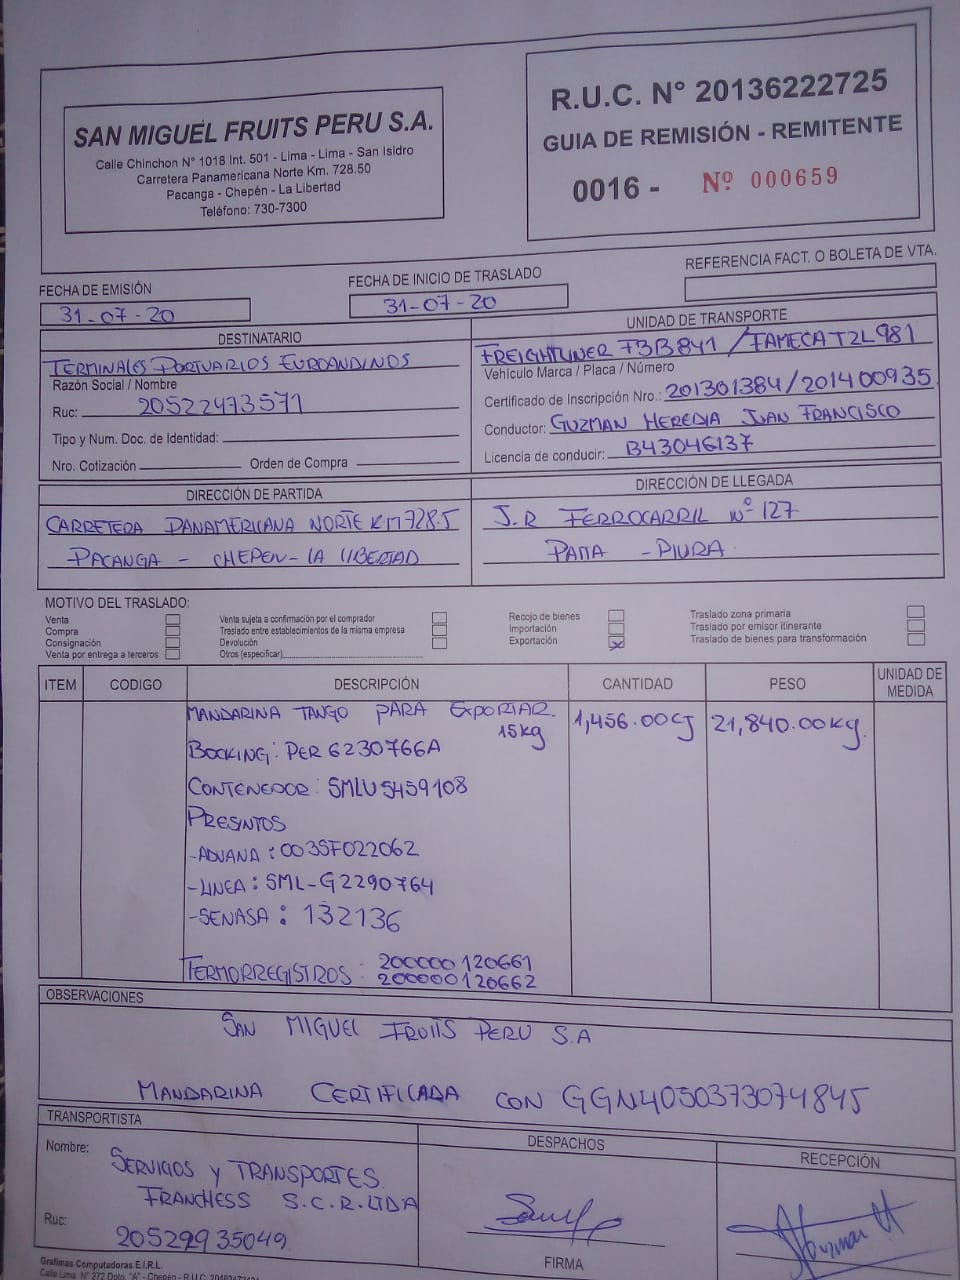 SAN MIGUEL FRUITS PERU S.A.
Calle Chinchon N° 1018 Int. 501 - Lima - Lima - San Isidro
Carretera Panamericana Norte Km. 728.50
Pacanga - Chepén - La Libertad
Teléfono: 730-7300
R.U.C. N° 20136222725
GUIA DE REMISIÓN - REMITENTE
0016 - Nº 000659
FECHA DE EMISIÓN
31-07-20
FECHA DE INICIO DE TRASLADO
31-07-20
REFERENCIA FACT. O BOLETA DE VTA.
DESTINATARIO
TERMINALES PORTUARIOS EUROANDINOS
Razón Social / Nombre
Ruc: 20522473571
Tipo y Num. Doc. de Identidad:
Nro. Cotización Orden de Compra
UNIDAD DE TRANSPORTE
FREIGHTLINER F3B841 / FAMECA T2L981
Vehículo Marca / Placa / Número
Certificado de Inscripción Nro.: 201301384/201400935
Conductor: GUZMAN HEREDIA JUAN FRANCISCO
Licencia de conducir: B43046137
DIRECCIÓN DE PARTIDA
CARRETERA PANAMERICANA NORTE KM 728.5
PACANGA - CHEPEN - LA LIBERTAD
DIRECCIÓN DE LLEGADA
J.R FERROCARRIL Nº 127
PAITA - PIURA
MOTIVO DEL TRASLADO:
Venta
Compra
Consignación
Venta por entrega a terceros
Venta sujeta a confirmación por el comprador
Traslado entre establecimientos de la misma empresa
Devolución
Otros (especificar)
Recojo de bienes
Importación
Exportación X
Traslado zona primaria
Traslado por emisor itinerante
Traslado de bienes para transformación
ITEM CODIGO DESCRIPCIÓN CANTIDAD PESO UNIDAD DE MEDIDA
MANDARINA TANGO PARA EXPORTAR. 1,456.00CJ 21,840.00Kg.
15kg
BOOKING: PER 6230766A
CONTENEDOR: SMLU 5459108
PRESINTOS
-ADUANA: 0035F022062
-LINEA: SML-G2290764
-SENASA: 132136
TERMORREGISTROS: 200000120661
200000120662
OBSERVACIONES
SAN MIGUEL FRUITS PERU S.A
MANDARINA CERTIFICADA CON GGN4050373074845
TRANSPORTISTA
Nombre: SERVICIOS Y TRANSPORTES
FRANCHESS S.C.R.LTDA
Ruc: 20529935049
DESPACHOS
FIRMA
RECEPCIÓN
Grafimas Computadoras E.I.R.L.